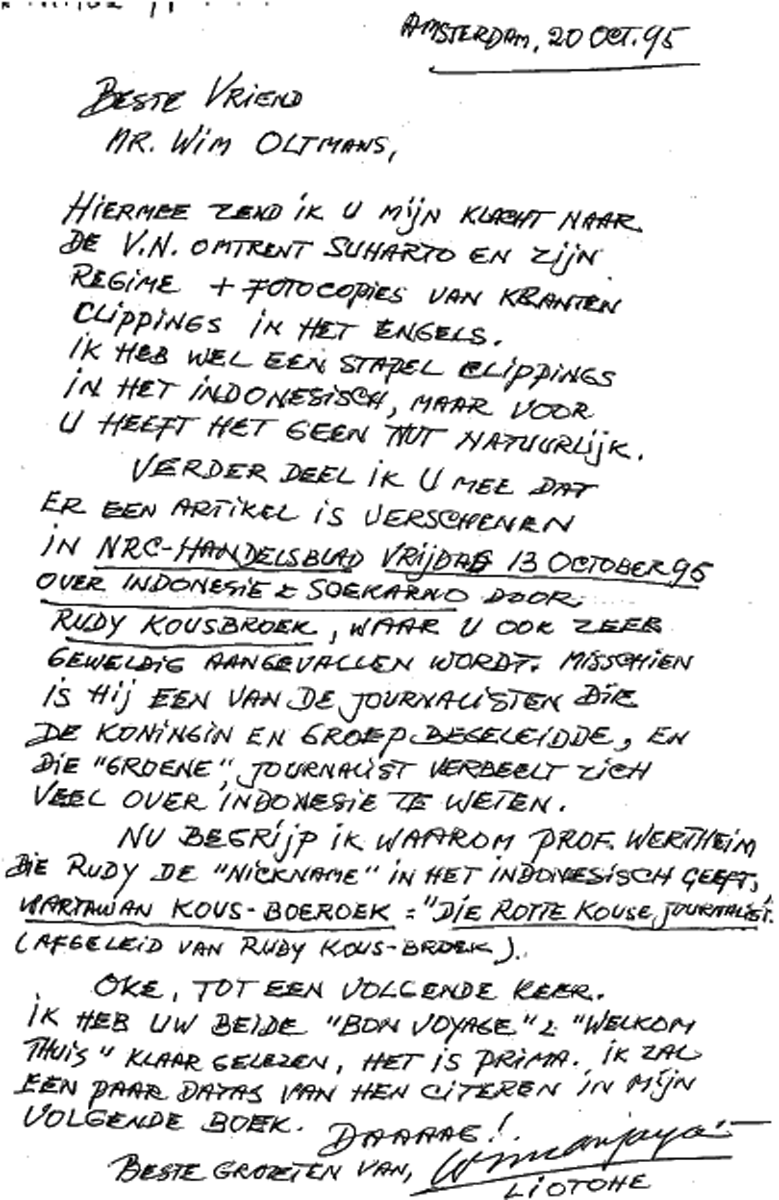 AMSTERDAM, 20 OCT. 95
BESTE VRIEND
MR. WIM OLTMANS,
HIERMEE ZEND IK U MIJN KLACHT NAAR
DE V.N. OMTRENT SUHARTO EN ZIJN
REGIME + FOTOCOPIES VAN KRANTEN
CLIPPINGS IN HET ENGELS.
IK HEB WEL EEN STAPEL CLIPPINGS
IN HET INDONESISCH, MAAR VOOR
U HEEFT HET GEEN NUT NATUURLIJK.
VERDER DEEL IK U MEE DAT
ER EEN ARTIKEL IS VERSCHENEN
IN NRC-HANDELSBLAD VRIJDAG 13 OCTOBER 95
OVER INDONESIE & SOEKARNO DOOR
RUDY KOUSBROEK, WAAR U OOK ZEER
GEWELDIG AANGEVALLEN WORDT. MISSCHIEN
IS HIJ EEN VAN DE JOURNALISTEN DIE
DE KONINGIN EN GROEP BEGELEIDDE, EN
DIE "GROENE" JOURNALIST VERBEELT ZICH
VEEL OVER INDONESIE TE WETEN.
NU BEGRIJP IK WAAROM PROF. WERTHEIM
DIE RUDY DE "NICKNAME" IN HET INDONESISCH GEEFT,
WARTAWAN KOUS-BOEROEK = "DIE ROTTE KOUSE JOURNALIST.
(AFGELEID VAN RUDY KOUS-BROEK).
OKE, TOT EEN VOLGENDE KEER.
IK HEB UW BEIDE "BON VOYAGE" & "WELKOM
THUIS" KLAAR GELEZEN, HET IS PRIMA. IK ZAL
EEN PAAR DATAS VAN HEN CITEREN IN MIJN
VOLGENDE BOEK. DAAAAG!
BESTE GROETEN VAN, Wimanjaya
LIOTOHE